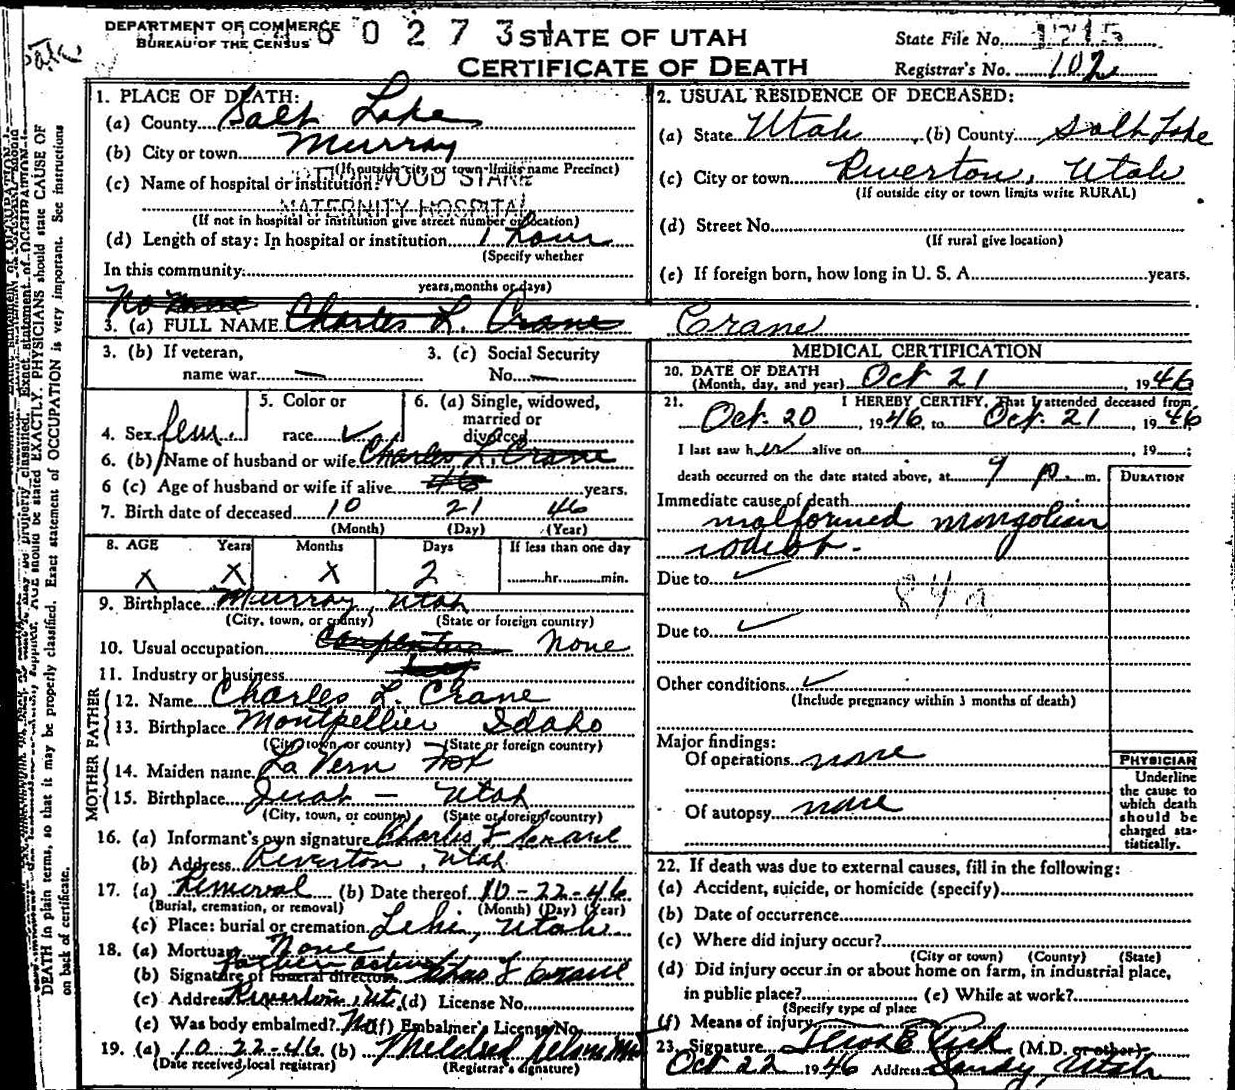 DEPARTMENT OF COMMERCE
BUREAU OF THE CENSUS
6 0 2 7 3
STATE OF UTAH
CERTIFICATE OF DEATH
State File No. 1215
Registrar's No. 102
1. PLACE OF DEATH:
(a) County Salt Lake
(b) City or town Murray
(If outside city or town limits name Precinct)
(c) Name of hospital or institution: COTTONWOOD STAKE
MATERNITY HOSPITAL
(If not in hospital or institution give street number or location)
(d) Length of stay: In hospital or institution 1 hour
(Specify whether
In this community:
years, months or days)
2. USUAL RESIDENCE OF DECEASED:
(a) State Utah (b) County Salt Lake
(c) City or town Riverton, Utah
(If outside city or town limits write RURAL)
(d) Street No.
(If rural give location)
(e) If foreign born, how long in U. S. A. years.
No Name
3. (a) FULL NAME Charles L. Crane Crane
3. (b) If veteran,
name war —
3. (c) Social Security
No. —
4. Sex fem.
5. Color or
race ✓
6. (a) Single, widowed,
married or
divorced
6. (b) Name of husband or wife Charles L. Crane
6 (c) Age of husband or wife if alive 46 years.
7. Birth date of deceased 10 21 46
(Month) (Day) (Year)
8. AGE Years Months Days If less than one day
X X X 2 hr. min.
9. Birthplace Murray, Utah
(City, town, or county) (State or foreign country)
10. Usual occupation Carpenter None
11. Industry or business
FATHER
12. Name Charles L. Crane
13. Birthplace Montpellier Idaho
(City, town, or county) (State or foreign country)
MOTHER
14. Maiden name La Vern Fox
15. Birthplace Juab — Utah
(City, town, or county) (State or foreign country)
16. (a) Informant's own signature Charles L Crane
(b) Address Riverton, Utah
17. (a) Removal (b) Date thereof 10-22-46
(Burial, cremation, or removal) (Month) (Day) (Year)
(c) Place: burial or cremation Lehi, Utah
18. (a) Mortuary None
Father acting
(b) Signature of funeral director Chas L Crane
(c) Address Riverton, Ut. (d) License No.
(e) Was body embalmed? No (f) Embalmer's License No.
19. (a) 10-22-46 (b) Mildred
(Date received local registrar) (Registrar's signature)
MEDICAL CERTIFICATION
20. DATE OF DEATH
(Month, day, and year) Oct 21, 1946
21. I HEREBY CERTIFY, That I attended deceased from
Oct. 20, 1946 to Oct. 21, 1946
I last saw her alive on , 19 ;
death occurred on the date stated above, at 9 p. m.
DURATION
Immediate cause of death
malformed mongolian
idiot.
Due to ✓
84a
Due to ✓
Other conditions ✓
(Include pregnancy within 3 months of death)
Major findings:
Of operations none
Of autopsy none
PHYSICIAN
Underline
the cause to
which death
should be
charged sta-
tistically.
22. If death was due to external causes, fill in the following:
(a) Accident, suicide, or homicide (specify)
(b) Date of occurrence
(c) Where did injury occur?
(City or town) (County) (State)
(d) Did injury occur in or about home on farm, in industrial place,
in public place? (e) While at work?
(Specify type of place
(f) Means of injury
23. Signature (M.D. or other)
Oct 22 1946 Address Sandy, Utah
DEATH in plain terms, so that it may be properly classified. Exact statement of OCCUPATION is very important. See instructions
on back of certificate.